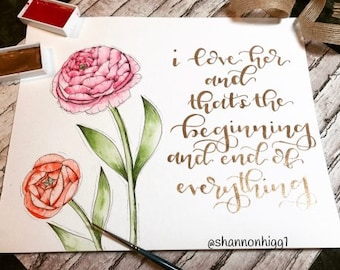 i love her
and
that's the
beginning
and end of
everything
@shannonhigg1